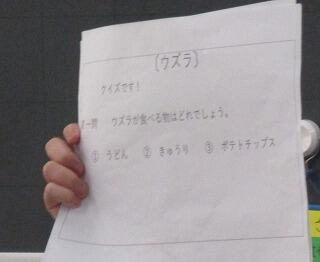 (ウズラ)
クイズです！
第一問　ウズラが食べる物はどれでしょう。
① うどん　② きゅうり　③ ポテトチップス